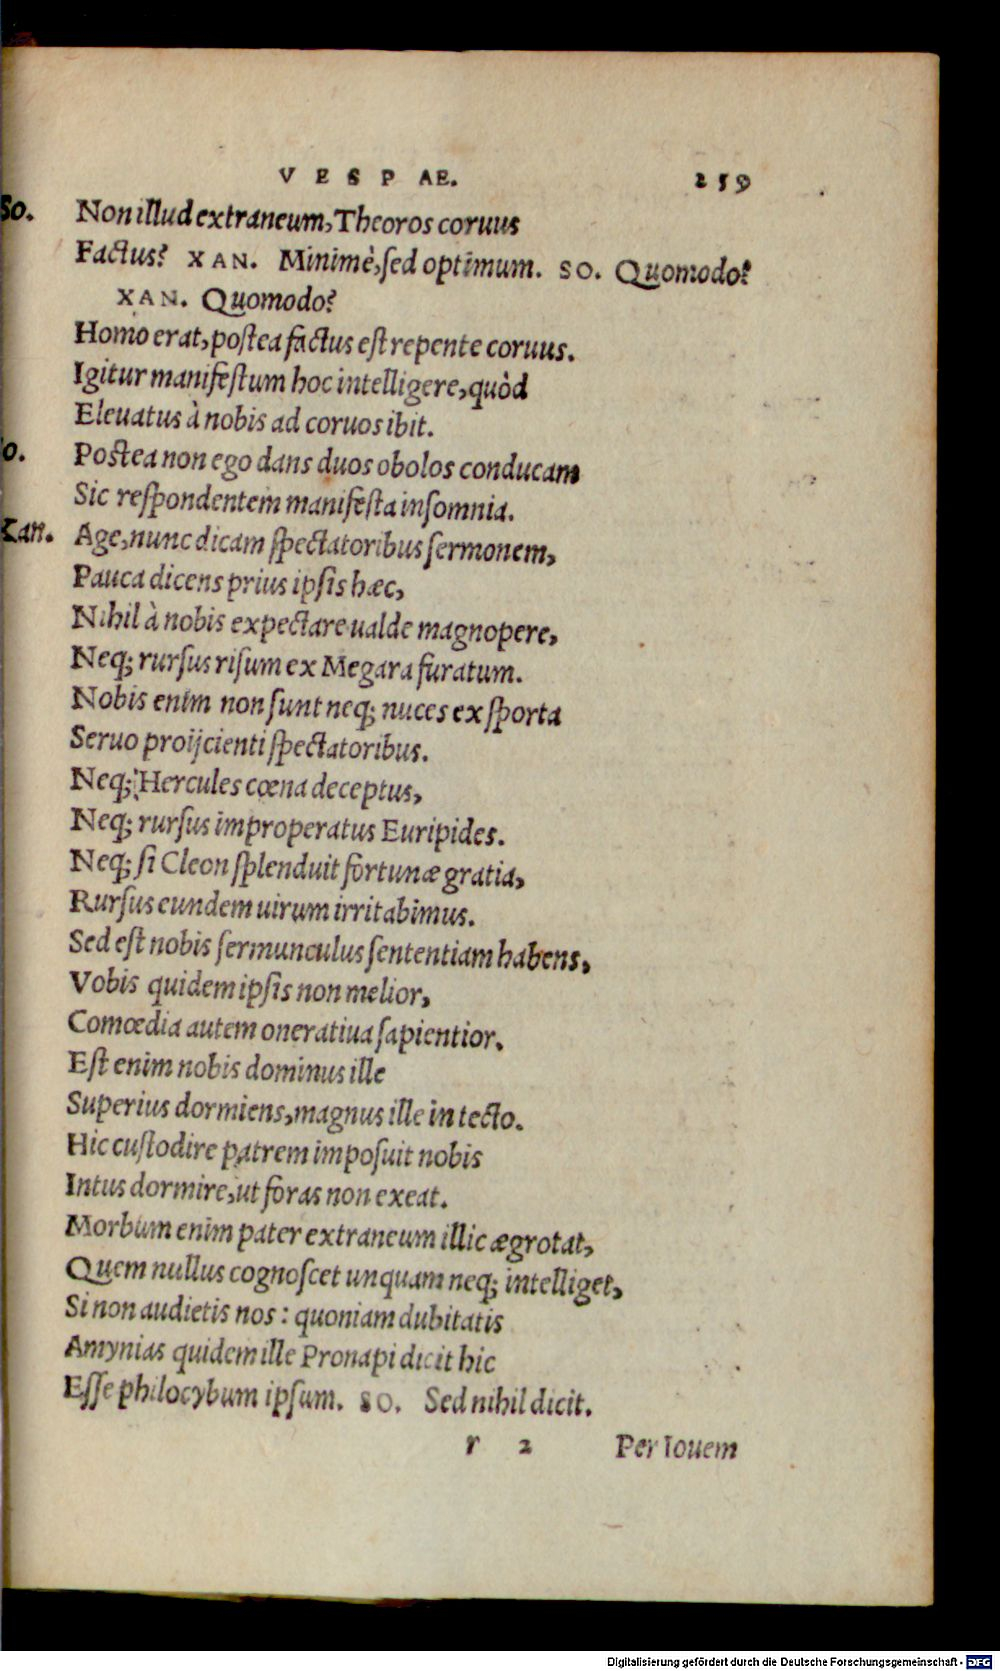 VESPAE. 259
So. Non illud extraneum, Theoros coruus
Factus? XAN. Minimè, sed optimum. SO. Quomodo?
XAN. Quomodo?
Homo erat, postea factus est repente coruus.
Igitur manifestum hoc intelligere, quòd
Eleuatus à nobis ad coruos ibit.
o. Postea non ego dans duos obolos conducam
Sic respondentem manifesta insomnia.
Xan. Age, nunc dicam spectatoribus sermonem,
Pauca dicens prius ipsis hæc,
Nihil à nobis expectare ualde magnopere,
Neq; rursus risum ex Megara furatum.
Nobis enim non sunt neq; nuces ex sporta
Seruo proijcienti spectatoribus.
Neq; Hercules cœna deceptus,
Neq; rursus improperatus Euripides.
Neq; si Cleon splenduit fortunæ gratia,
Rursus eundem uirum irritabimus.
Sed est nobis sermunculus sententiam habens,
Vobis quidem ipsis non melior,
Comœdia autem oneratiua sapientior.
Est enim nobis dominus ille
Superius dormiens, magnus ille in tecto.
Hic custodire patrem imposuit nobis
Intus dormire, ut foras non exeat.
Morbum enim pater extraneum illic ægrotat,
Quem nullus cognoscet unquam neq; intelliget,
Si non audietis nos : quoniam dubitatis
Amynias quidem ille Pronapi dicit hic
Esse philocybum ipsum. SO. Sed nihil dicit.
r 2 Per Iouem
Digitalisierung gefördert durch die Deutsche Forschungsgemeinschaft - DFG